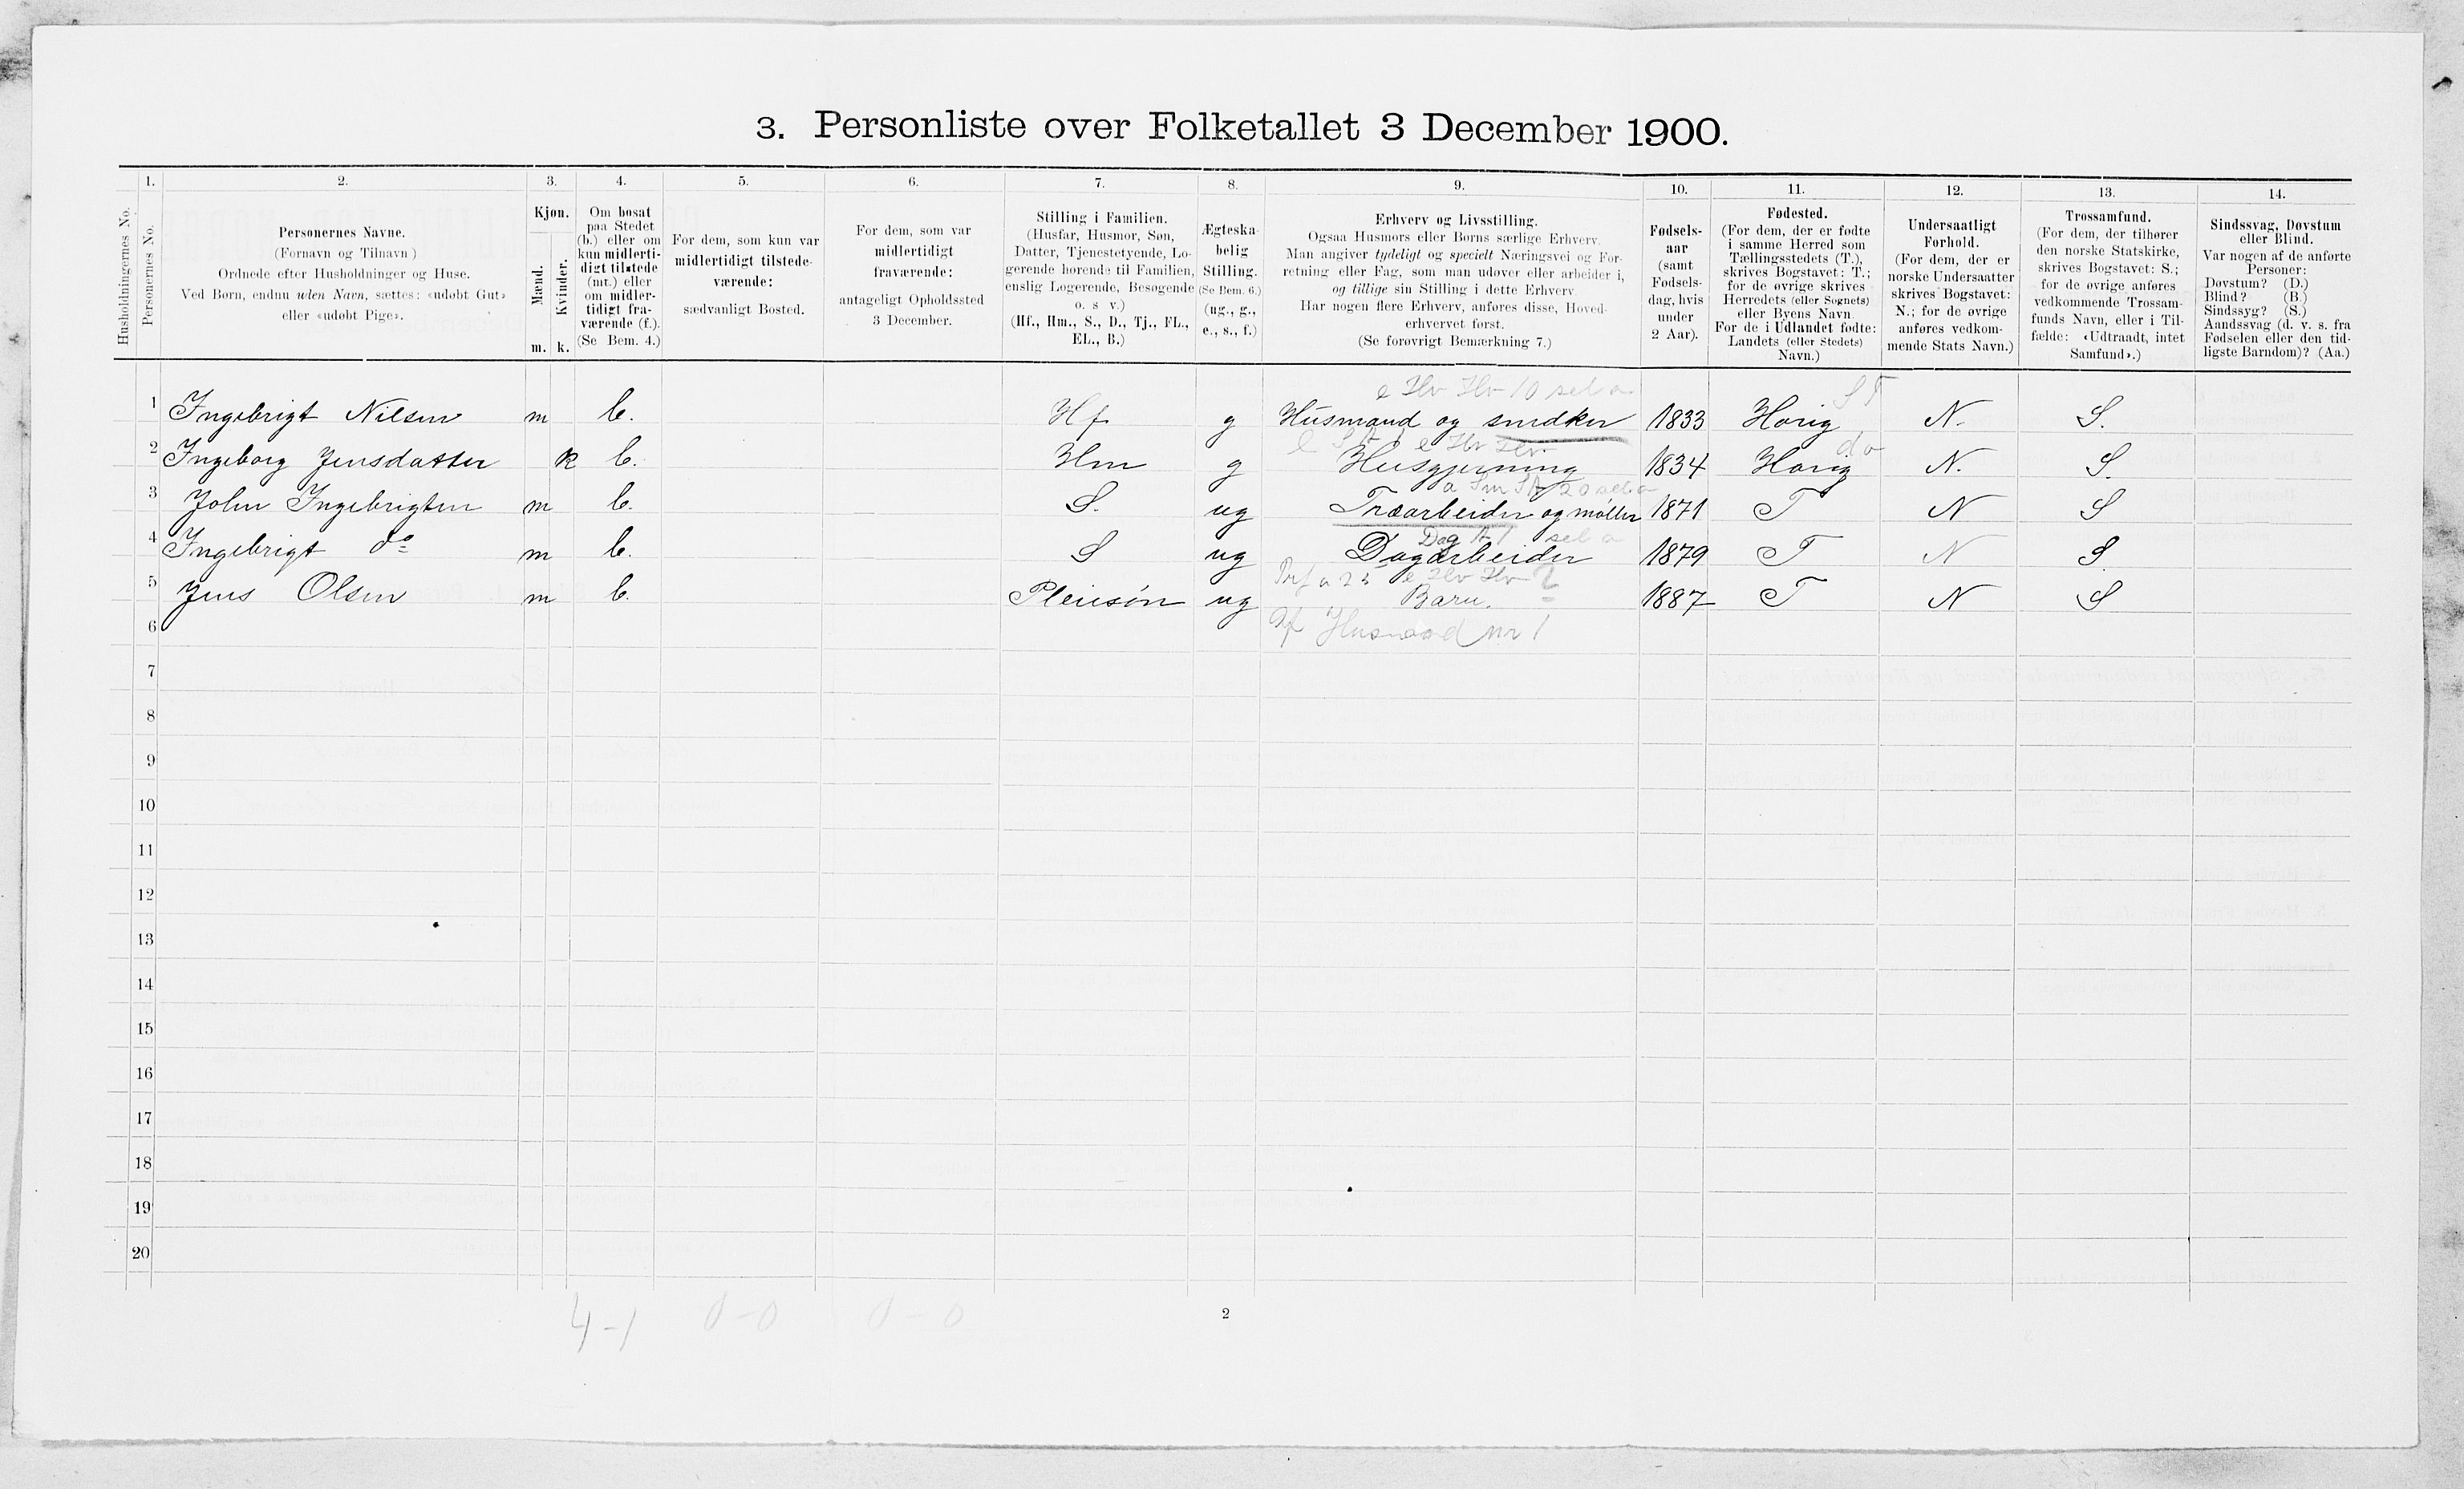 3. Personliste over Folketallet 3 December 1900.
1. 2. 3. 4. 5. 6. 7. 8. 9. 10. 11. 12. 13. 14.
Husholdningernes No.
Personernes No.
Personernes Navne.
(Fornavn og Tilnavn)
Ordnede efter Husholdninger og Huse.
Ved Børn, endnu uden Navn, sættes: «udøbt Gut»
eller «udøbt Pige».
Kjøn.
Mænd.
Kvinder.
m. k.
Om bosat
paa Stedet
(b.) eller om
kun midlerti-
digt tilstede
(mt.) eller
om midler-
tidigt fra-
værende (f.).
(Se Bem. 4.)
For dem, som kun var
midlertidigt tilstede-
værende:
sædvanligt Bosted.
For dem, som var
midlertidigt
fraværende:
antageligt Opholdssted
3 December.
Stilling i Familien.
(Husfar, Husmor, Søn,
Datter, Tjenestetyende, Lo-
gerende hørende til Familien,
enslig Logerende, Besøgende
o. s v.)
(Hf., Hm., S., D., Tj., FL.,
EL., B.)
Ægteska-
belig
Stilling.
(Se Bem. 6.)
(ug., g.,
e., s., f.)
Erhverv og Livsstilling.
Ogsaa Husmors eller Børns særlige Erhverv.
Man angiver tydeligt og specielt Næringsvei og For-
retning eller Fag, som man udøver eller arbeider i,
og tillige sin Stilling i dette Erhverv.
Har nogen flere Erhverv, anføres disse, Hoved-
erhvervet først.
(Se forøvrigt Bemærkning 7.)
Fødsels-
aar
(samt
Fødsels-
dag, hvis
under
2 Aar).
Fødested.
(For dem, der er fødte
i samme Herred som
Tællingsstedets (T.),
skrives Bogstavet: T.;
for de øvrige skrives
Herredets (eller Sognets)
eller Byens Navn.
For de i Udlandet fødte:
Landets (eller Stedets)
Navn.)
Undersaatligt
Forhold.
(For dem, der er
norske Undersaatter
skrives Bogstavet:
N.; for de øvrige
anføres vedkom-
mende Stats Navn.)
Trossamfund.
(For dem, der tilhører
den norske Statskirke,
skrives Bogstavet: S.;
for de øvrige anføres
vedkommende Trossam-
funds Navn, eller i Til-
fælde: «Udtraadt, intet
Samfund».)
Sindssvag, Døvstum
eller Blind.
Var nogen af de anførte
Personer:
Døvstum? (D.)
Blind? (B.)
Sindssyg? (S.)
Aandssvag (d. v. s. fra
Fødselen eller den tid-
ligste Barndom)? (Aa.)
1 Ingebrigt Nilsen m b. Hf g Husmand og snedker 1833 Horig N. S.
2 Ingeborg Jensdatter k b. Hm g Husgjerning 1834 Horig do N. S.
3 John Ingebrigtsen m b. S. ug Træarbeider og møller 1871 T N S
4 Ingebrigt do m b. S ug Dagarbeider 1879 T N S.
5 Jens Olsen m b. Pleiesøn ug Barn. 1887 T N S
6 Husmand nr 1
7
8
9
10
11
12
13
14
15
16
17
18
19
20
4-1 0-0 0-0
2